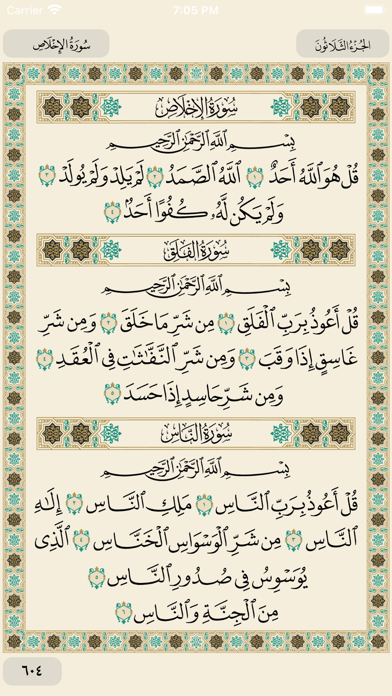 Carrier 7:05 PM
سُورَةُ الإِخْلَاصِ الجُزءُ الثَّلَاثُونَ
سُورَةُ الإِخْلَاصِ
بِسْمِ ٱللَّهِ ٱلرَّحْمَٰنِ ٱلرَّحِيمِ
قُلْ هُوَ ٱللَّهُ أَحَدٌ ١ ٱللَّهُ ٱلصَّمَدُ ٢ لَمْ يَلِدْ وَلَمْ يُولَدْ ٣
وَلَمْ يَكُن لَّهُۥ كُفُوًا أَحَدٌۢ ٤
سُورَةُ الفَلَقِ
بِسْمِ ٱللَّهِ ٱلرَّحْمَٰنِ ٱلرَّحِيمِ
قُلْ أَعُوذُ بِرَبِّ ٱلْفَلَقِ ١ مِن شَرِّ مَا خَلَقَ ٢ وَمِن شَرِّ
غَاسِقٍ إِذَا وَقَبَ ٣ وَمِن شَرِّ ٱلنَّفَّٰثَٰتِ فِى ٱلْعُقَدِ ٤
وَمِن شَرِّ حَاسِدٍ إِذَا حَسَدَ ٥
سُورَةُ النَّاسِ
بِسْمِ ٱللَّهِ ٱلرَّحْمَٰنِ ٱلرَّحِيمِ
قُلْ أَعُوذُ بِرَبِّ ٱلنَّاسِ ١ مَلِكِ ٱلنَّاسِ ٢ إِلَٰهِ
ٱلنَّاسِ ٣ مِن شَرِّ ٱلْوَسْوَاسِ ٱلْخَنَّاسِ ٤ ٱلَّذِى
يُوَسْوِسُ فِى صُدُورِ ٱلنَّاسِ ٥
مِنَ ٱلْجِنَّةِ وَٱلنَّاسِ ٦
٦٠٤